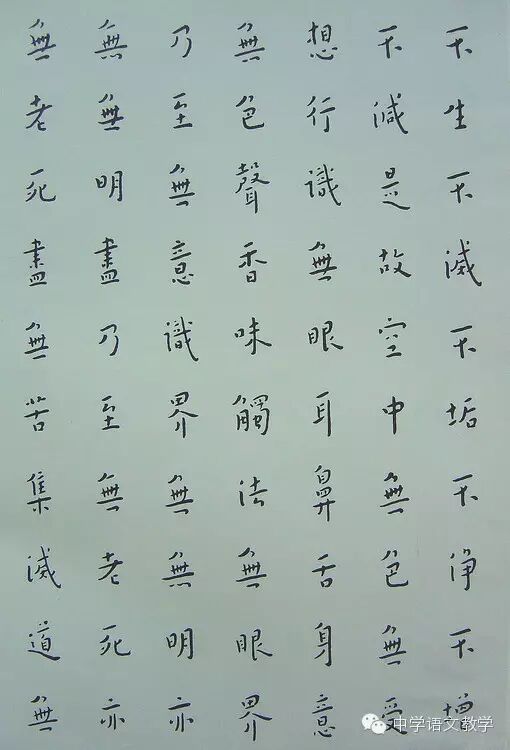 不生不滅不垢不淨不增
不減是故空中無色無受
想行識無眼耳鼻舌身意
無色聲香味觸法無眼界
乃至無意識界無無明亦
無無明盡乃至無老死亦
無老死盡無苦集滅道無
中学语文教学